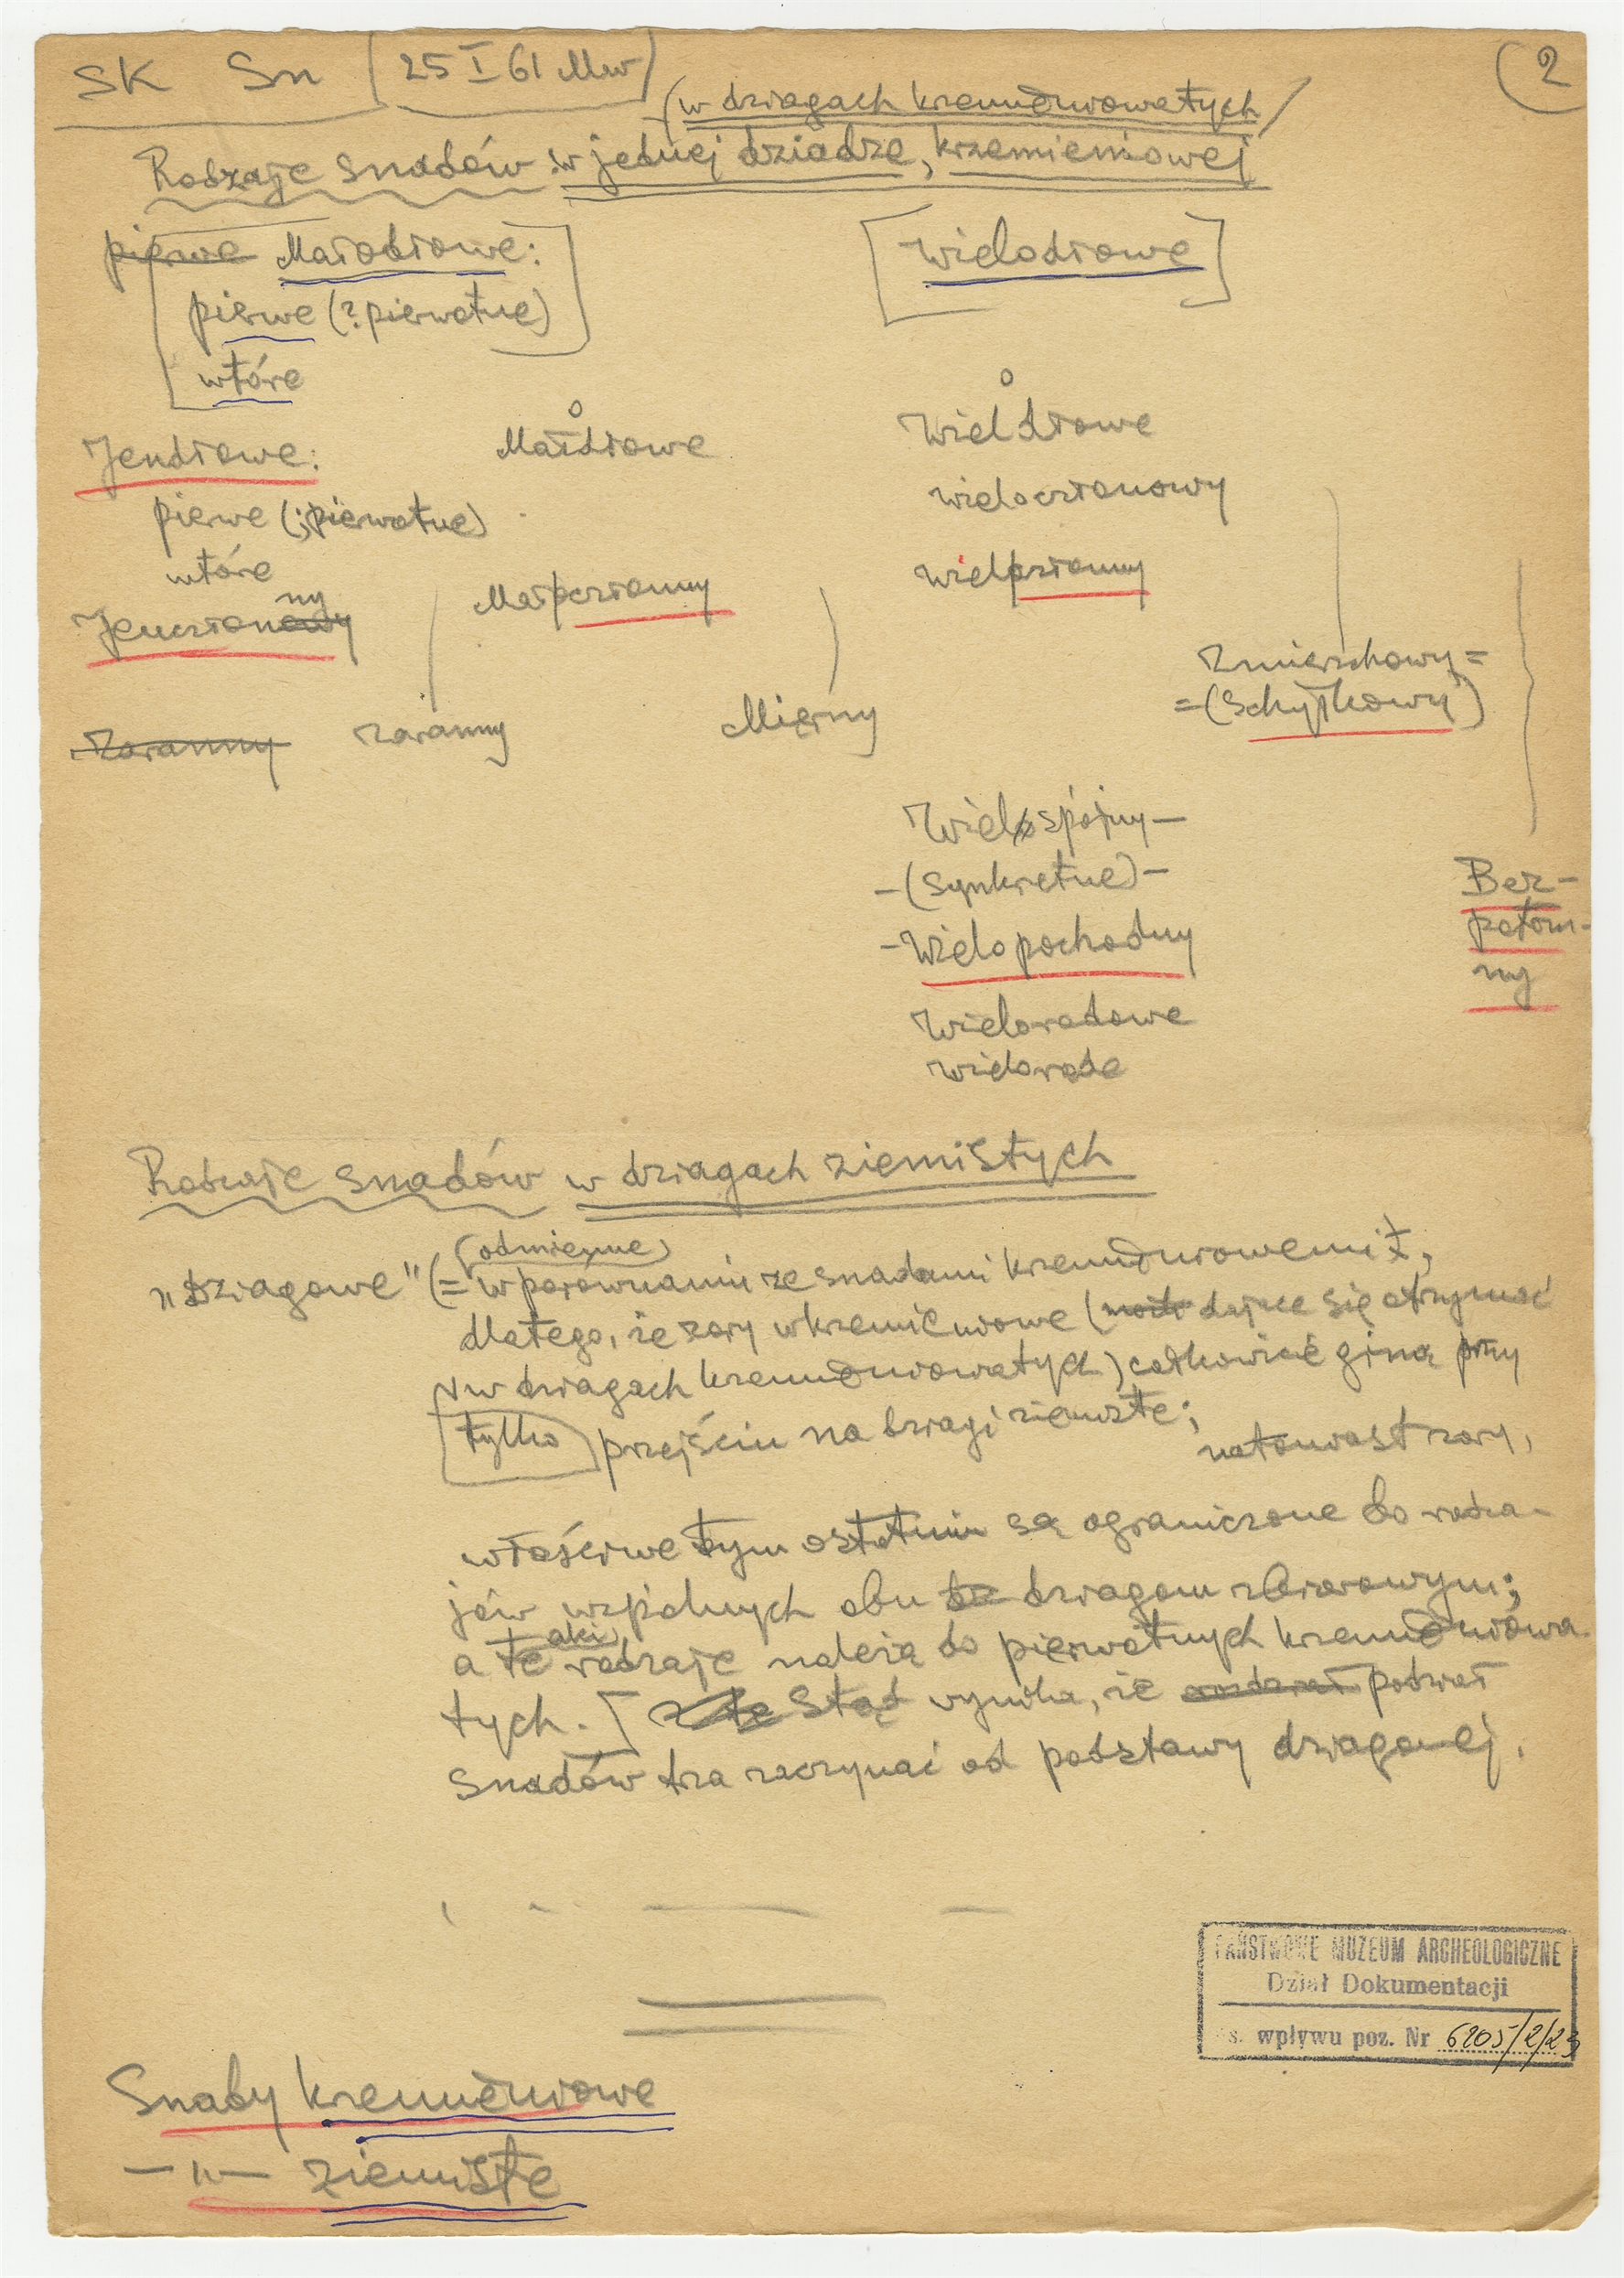 SK Sn 25 I 61 Mw
2
(w dziagach krzemieniowatych)
Rodzaje snadów w jednej dziadze, krzemieniowej
pierwe Małodiowe:
Wielodiowe
pierwe (? pierwotne)
wtóre
Jendiowe:
Małdiowe
o
Wieldiowe
o
pierwe (; pierwotne)
wieloczłonowy
wtóre
Jenczłonowy
ny
Małoczłonny
wieloczłonny
Zmierzchowy =
= (Schyłkowy)
Zaranny zaranny
Mierny
Wielospójny –
– (synkretne) –
– Wielopochodny
Bez-
potom-
ny
Wielorodowe
wielorode
Rodzaje snadów w dziagach ziemistych
„Dziagowe" (= w porównaniu ze snadami krzemieniowemi,
(odmienne)
dlatego, że zary krzemieniowe ( dające się otrzymać
w dziagach krzemieniowatych) całkowicie giną przy
tylko
przejściu na dziagi ziemiste;
natomiast zary,
właściwe tym ostatnim są ograniczone do rodza-
jów wspólnych obu dziagom zbiorowym;
a te rodzaje należą do pierwotnych krzemieniowa-
aki
tych. [ Stąd wynika, że podział
snadów trza zaczynać od podstawy dziagowej.
PAŃSTWOWE MUZEUM ARCHEOLOGICZNE
Dział Dokumentacji
s. wpływu poz. Nr 6205/2/23
Snady krzemieniowe
— „ — ziemiste